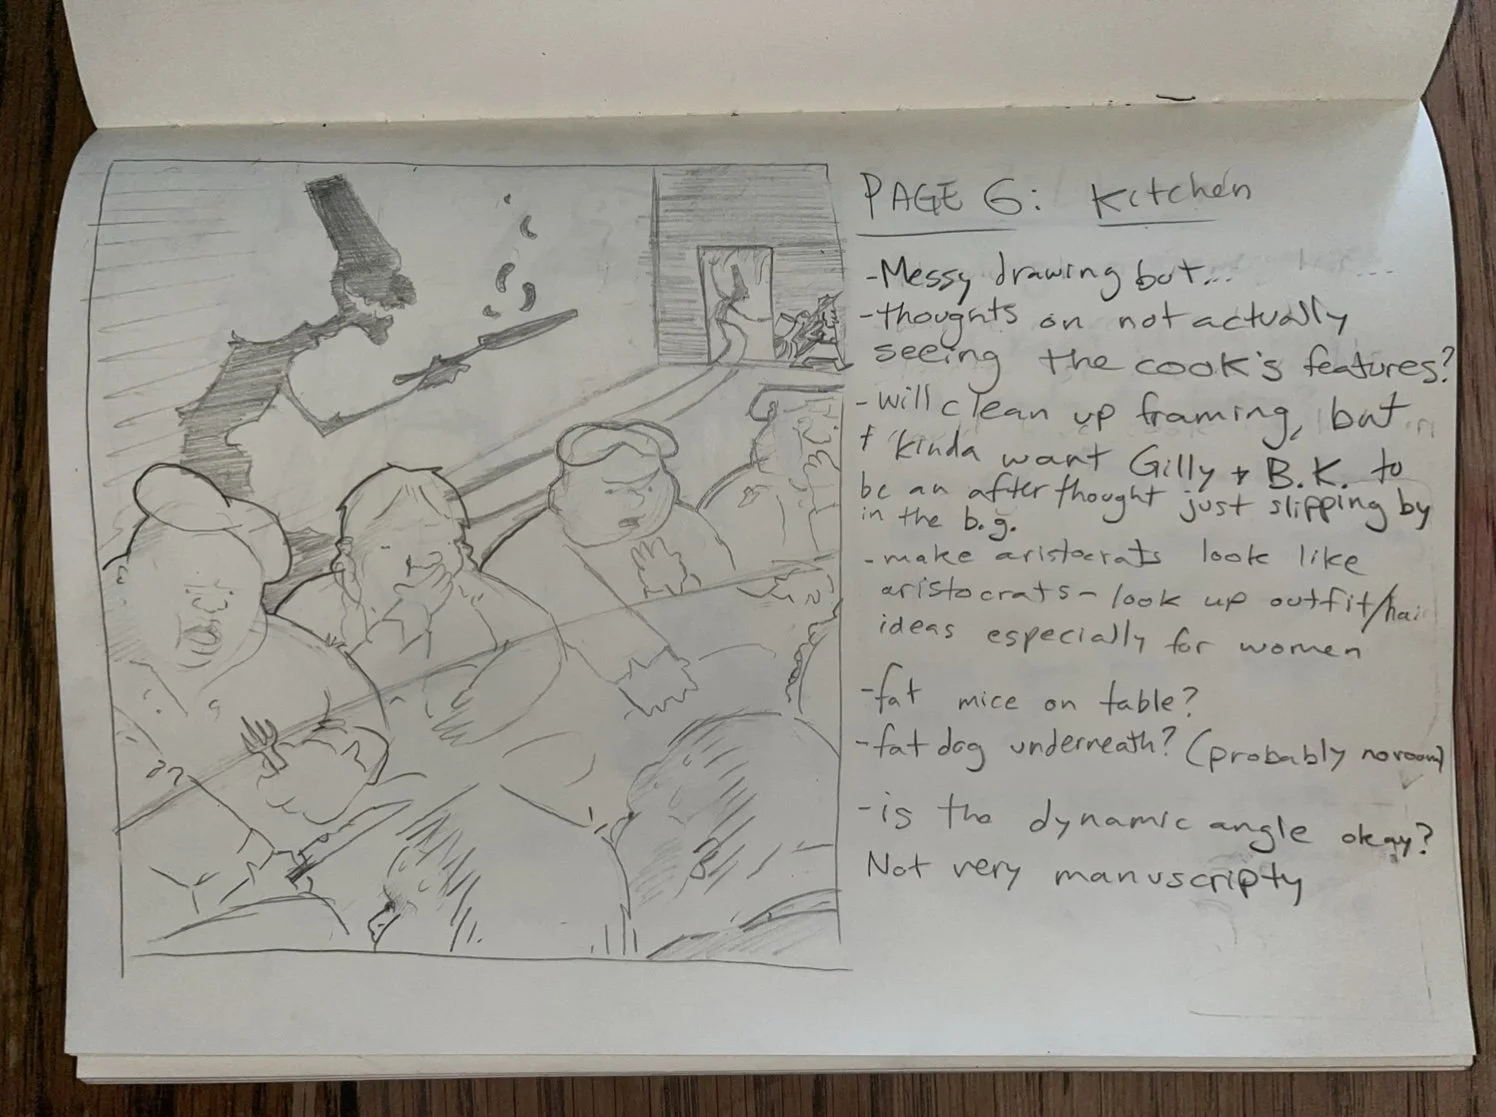 PAGE 6: Kitchen
-Messy drawing but...
-thoughts on not actually
seeing the cook's features?
-will clean up framing, but
+ kinda want Gilly + B.K. to
be an afterthought just slipping by
in the b.g.
-make aristocrats look like
aristocrats - look up outfit/hair
ideas especially for women
-fat mice on table?
-fat dog underneath? (probably no room)
-is the dynamic angle okay?
Not very manuscripty